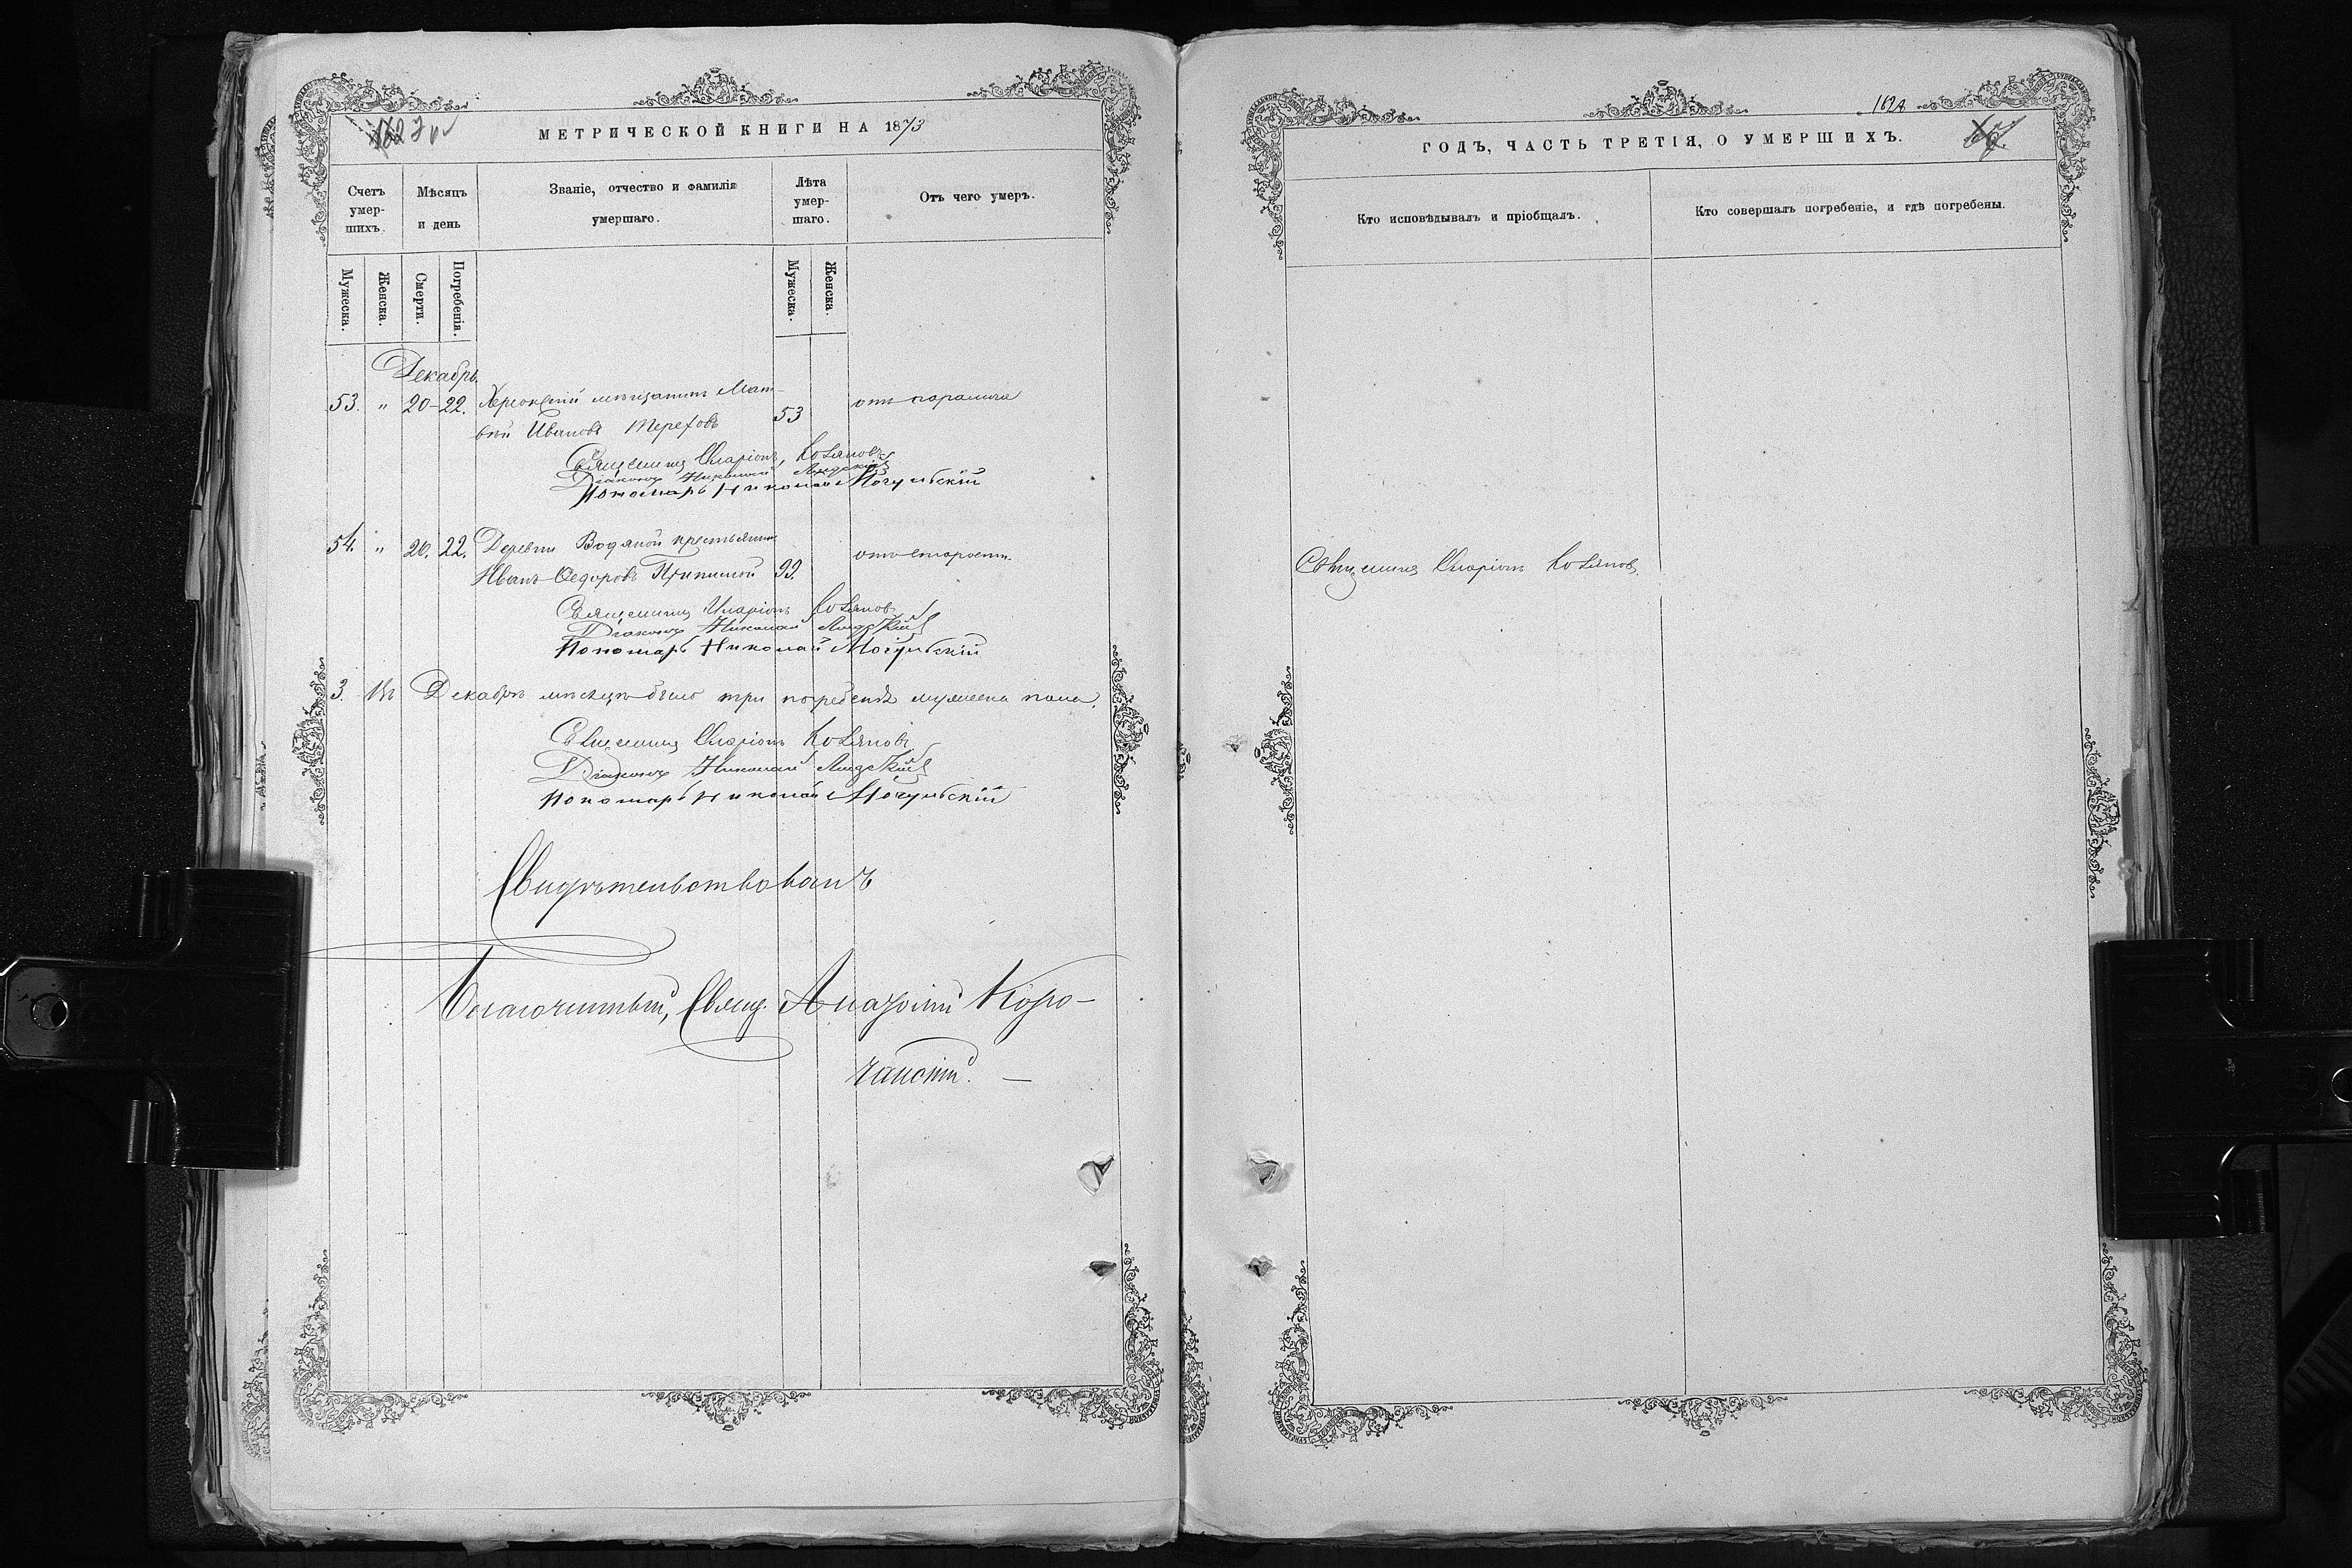 МЕТРИЧЕСКОЙ КНИГИ НА 1873
Счетъ умершихъ.
Мѣсяцъ и день
Званіе, отчество и фамилія умершаго.
Лѣта умершаго.
Отъ чего умеръ.
Мужеска.
Женска.
Смерти.
Погребенія.
Мужеска.
Женска.
Декабрь.
53. " 20-22. Херсонскій мѣщанинъ Мат-
вѣй Ивановъ Тереховъ 53 отъ паралича
Священникъ Иларіонъ
Діаконъ Николай
Пономарь Николай Мочульскій
54. " 20. 22. Деревни Водяной крестьянинъ
Иванъ Ѳедоровъ 99. отъ старости.
Священникъ Иларіонъ
Діаконъ Николай
Пономарь Николай Мочульскій
3. Въ Декабрѣ мѣсяцѣ было три погребенія мужеска пола.
Священникъ Иларіонъ
Діаконъ Николай
Пономарь Николай Мочульскій
Свидѣтельствовалъ
Благочинный, Свящ. Анатолій Коро-
чанскій. —
162А
ГОДЪ, ЧАСТЬ ТРЕТІЯ, О УМЕРШИХЪ.
Кто исповѣдывалъ и пріобщалъ.
Кто совершалъ погребеніе, и гдѣ погребены.
Священникъ Иларіонъ